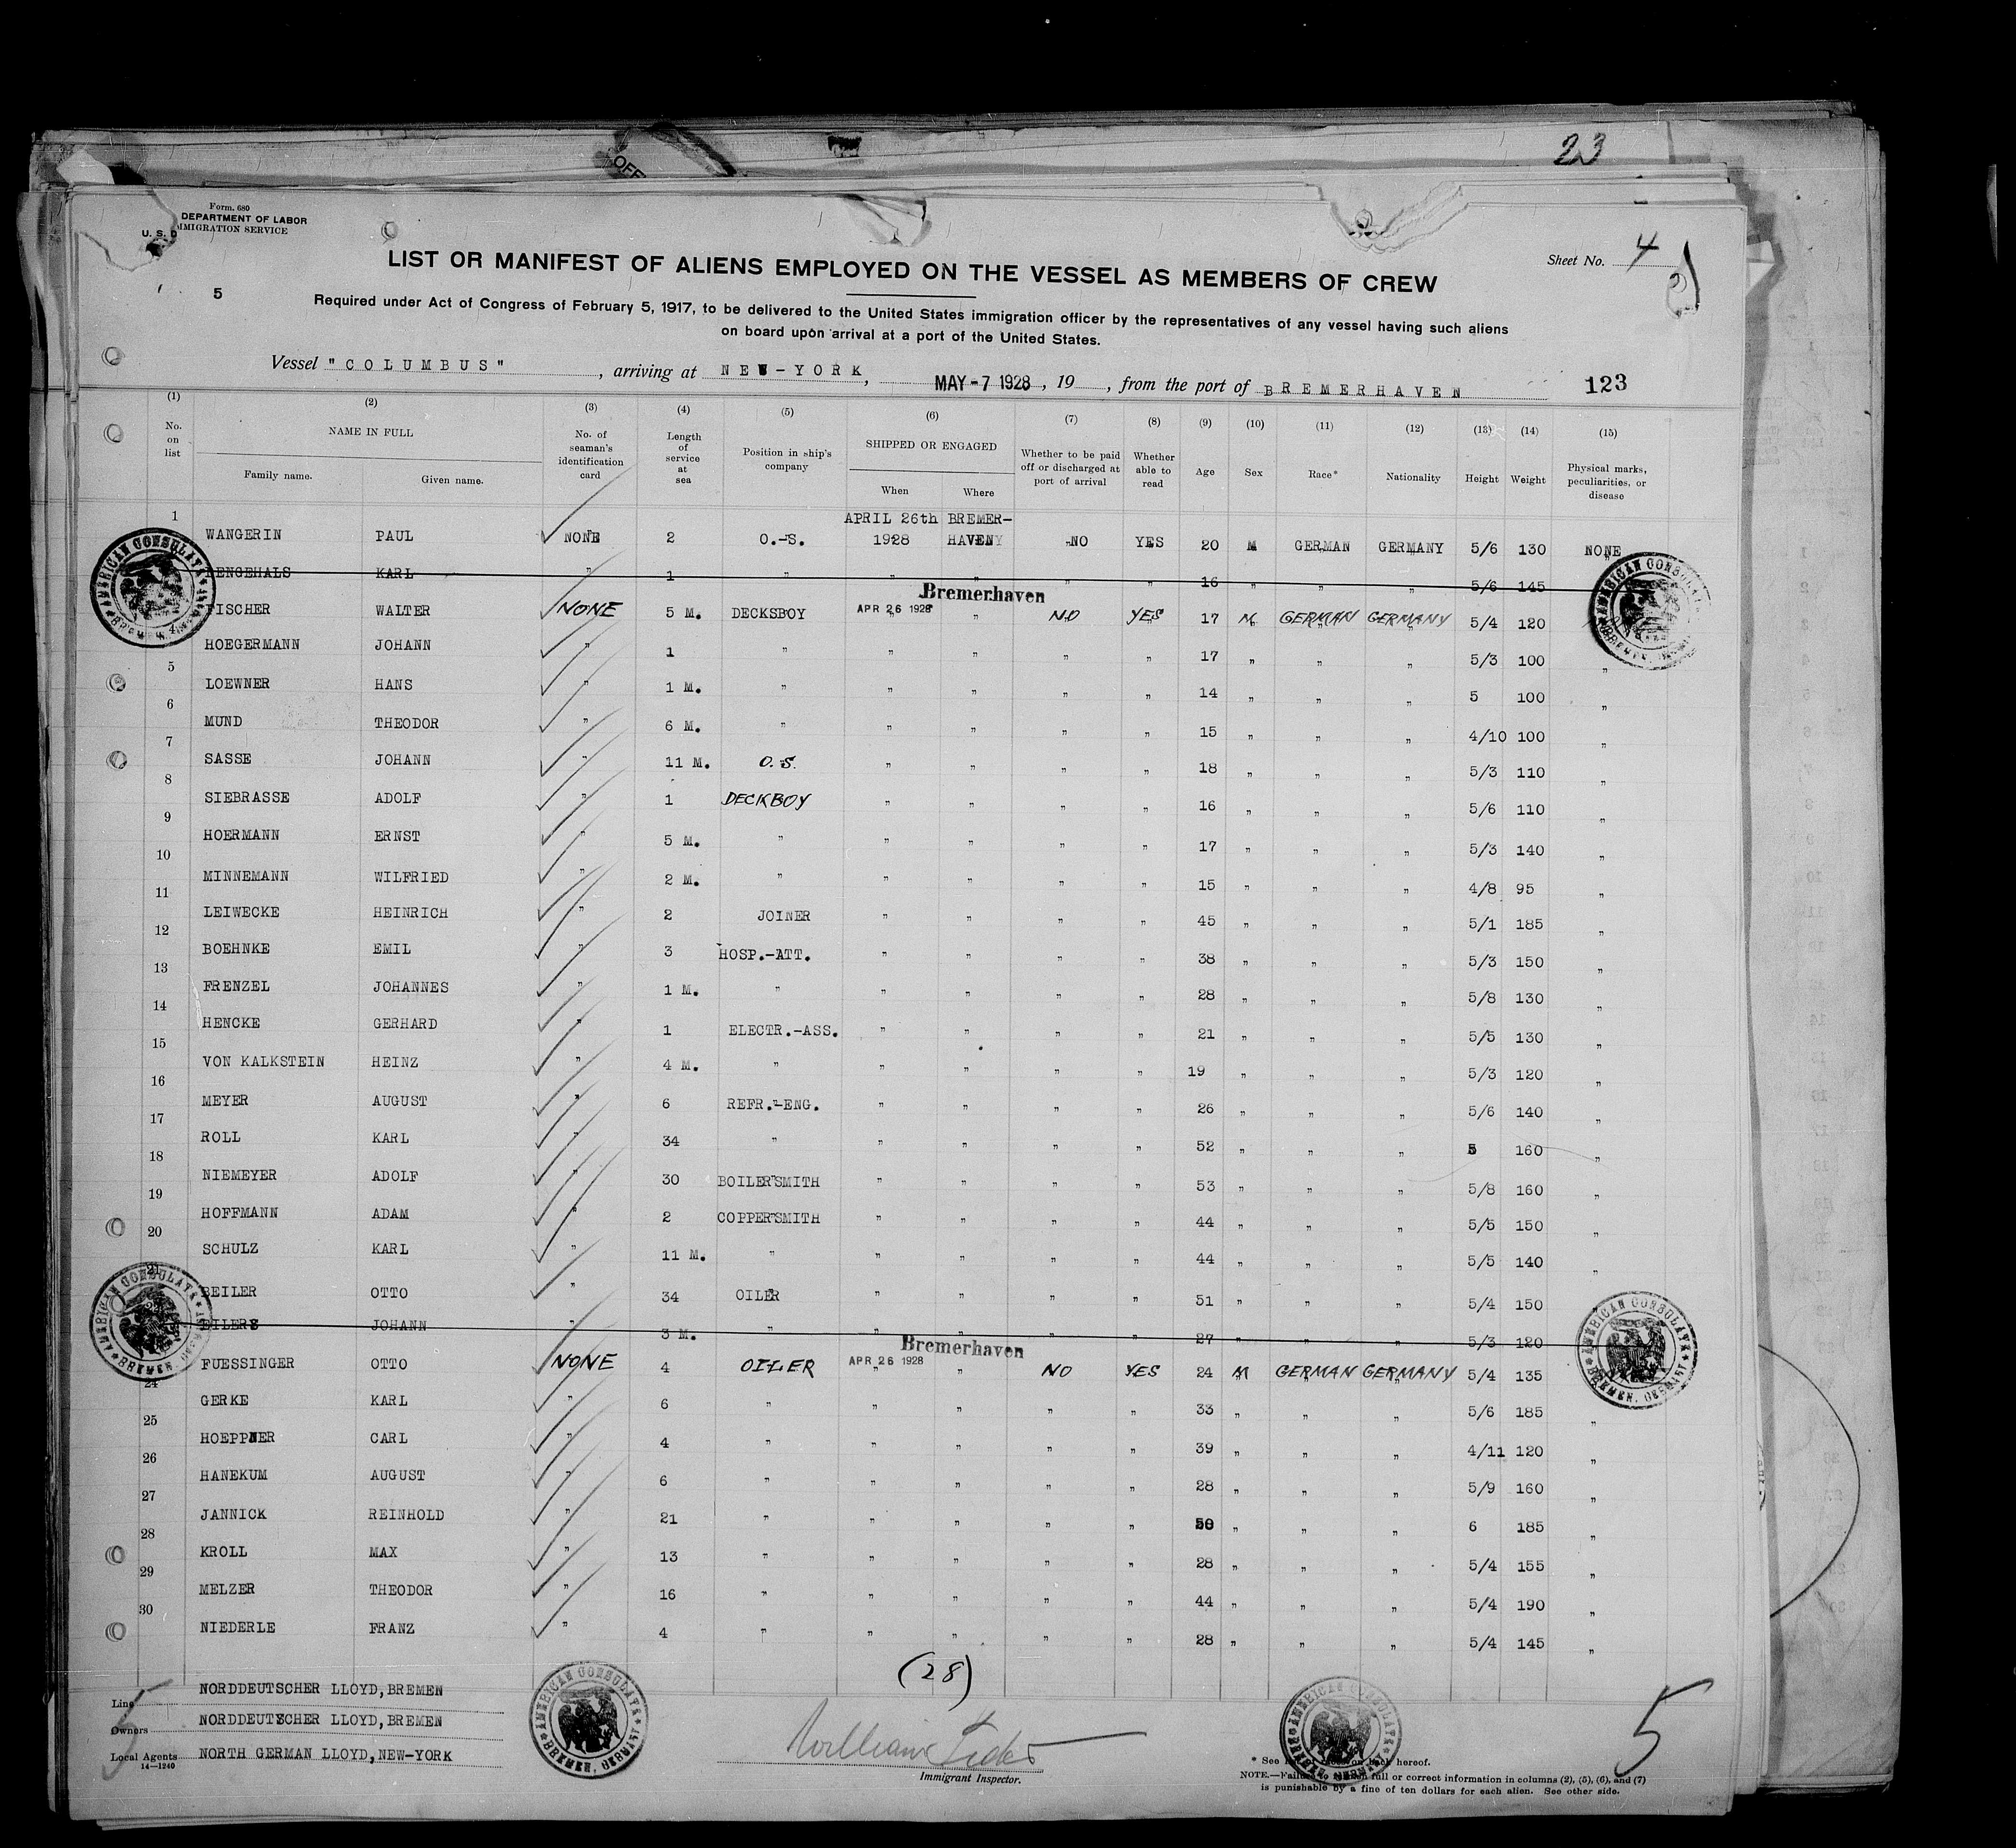 23
OFF
Form. 680
U. S. D DEPARTMENT OF LABOR
MMIGRATION SERVICE
Sheet No. 4
5
LIST OR MANIFEST OF ALIENS EMPLOYED ON THE VESSEL AS MEMBERS OF CREW
Required under Act of Congress of February 5, 1917, to be delivered to the United States immigration officer by the representatives of any vessel having such aliens
on board upon arrival at a port of the United States.
Vessel "COLUMBUS", arriving at NEW-YORK, MAY-7 1928, 19, from the port of BREMERHAVEN 123
(1) (2) (3) (4) (5) (6) (7) (8) (9) (10) (11) (12) (13) (14) (15)
No. on list NAME IN FULL Family name. Given name. No. of seaman's identification card Length of service at sea Position in ship's company SHIPPED OR ENGAGED When Where Whether to be paid off or discharged at port of arrival Whether able to read Age Sex Race* Nationality Height Weight Physical marks, peculiarities, or disease
1 WANGERIN PAUL NONE 2 O.-S. APRIL 26th 1928 BREMER-HAVEN NO YES 20 M GERMAN GERMANY 5/6 130 NONE
ENGEHALS KARL " 1 " " " " " 16 " " " 5/6 145
Bremerhaven
FISCHER WALTER NONE 5 M. DECKSBOY APR 26 1928 " NO YES 17 M GERMAN GERMANY 5/4 120
4 HOEGERMANN JOHANN " 1 " " " " " 17 " " " 5/3 100 "
5 LOEWNER HANS " 1 M. " " " " " 14 " " " 5 100 "
6 MUND THEODOR " 6 M. " " " " " 15 " " " 4/10 100 "
7 SASSE JOHANN " 11 M. O.S. " " " " 18 " " " 5/3 110 "
8 SIEBRASSE ADOLF " 1 DECKBOY " " " " 16 " " " 5/6 110 "
9 HOERMANN ERNST " 5 M. " " " " " 17 " " " 5/3 140 "
10 MINNEMANN WILFRIED " 2 M. " " " " " 15 " " " 4/8 95 "
11 LEIWECKE HEINRICH " 2 JOINER " " " " 45 " " " 5/1 185 "
12 BOEHNKE EMIL " 3 HOSP.-ATT. " " " " 38 " " " 5/3 150 "
13 FRENZEL JOHANNES " 1 M. " " " " " 28 " " " 5/8 130 "
14 HENCKE GERHARD " 1 ELECTR.-ASS. " " " " 21 " " " 5/5 130 "
15 VON KALKSTEIN HEINZ " 4 M. " " " " " 19 " " " 5/3 120 "
16 MEYER AUGUST " 6 REFR.-ENG. " " " " 26 " " " 5/6 140 "
17 ROLL KARL " 34 " " " " " 52 " " " 5 160 "
18 NIEMEYER ADOLF " 30 BOILERSMITH " " " " 53 " " " 5/8 160 "
19 HOFFMANN ADAM " 2 COPPERSMITH " " " " 44 " " " 5/5 150 "
20 SCHULZ KARL " 11 M. " " " " " 44 " " " 5/5 140 "
21 BEILER OTTO " 34 OILER " " " " 51 " " " 5/4 150 "
22 EILERS JOHANN 3 M. " " " " " 27 " " " 5/3 120
Bremerhaven
FUESSINGER OTTO NONE 4 OILER APR 26 1928 " NO YES 24 M GERMAN GERMANY 5/4 135
24 GERKE KARL " 6 " " " " " 33 " " " 5/6 185 "
25 HOEPPNER CARL " 4 " " " " " 39 " " " 4/11 120 "
26 HANEKUM AUGUST " 6 " " " " " 28 " " " 5/9 160 "
27 JANNICK REINHOLD " 21 " " " " " 50 " " " 6 185 "
28 KROLL MAX " 13 " " " " " 28 " " " 5/4 155 "
29 MELZER THEODOR " 16 " " " " " 44 " " " 5/4 190 "
30 NIEDERLE FRANZ " 4 " " " " " 28 " " " 5/4 145 "
(28)
AMERICAN CONSULATE BREMEN, GERMANY
Line NORDDEUTSCHER LLOYD, BREMEN
Owners NORDDEUTSCHER LLOYD, BREMEN
Local Agents NORTH GERMAN LLOYD, NEW-YORK
14—1240
5
William
Immigrant Inspector.
* See list of races on back hereof.
NOTE.—Failure to furnish full or correct information in columns (2), (5), (6), and (7)
is punishable by a fine of ten dollars for each alien. See other side.
5